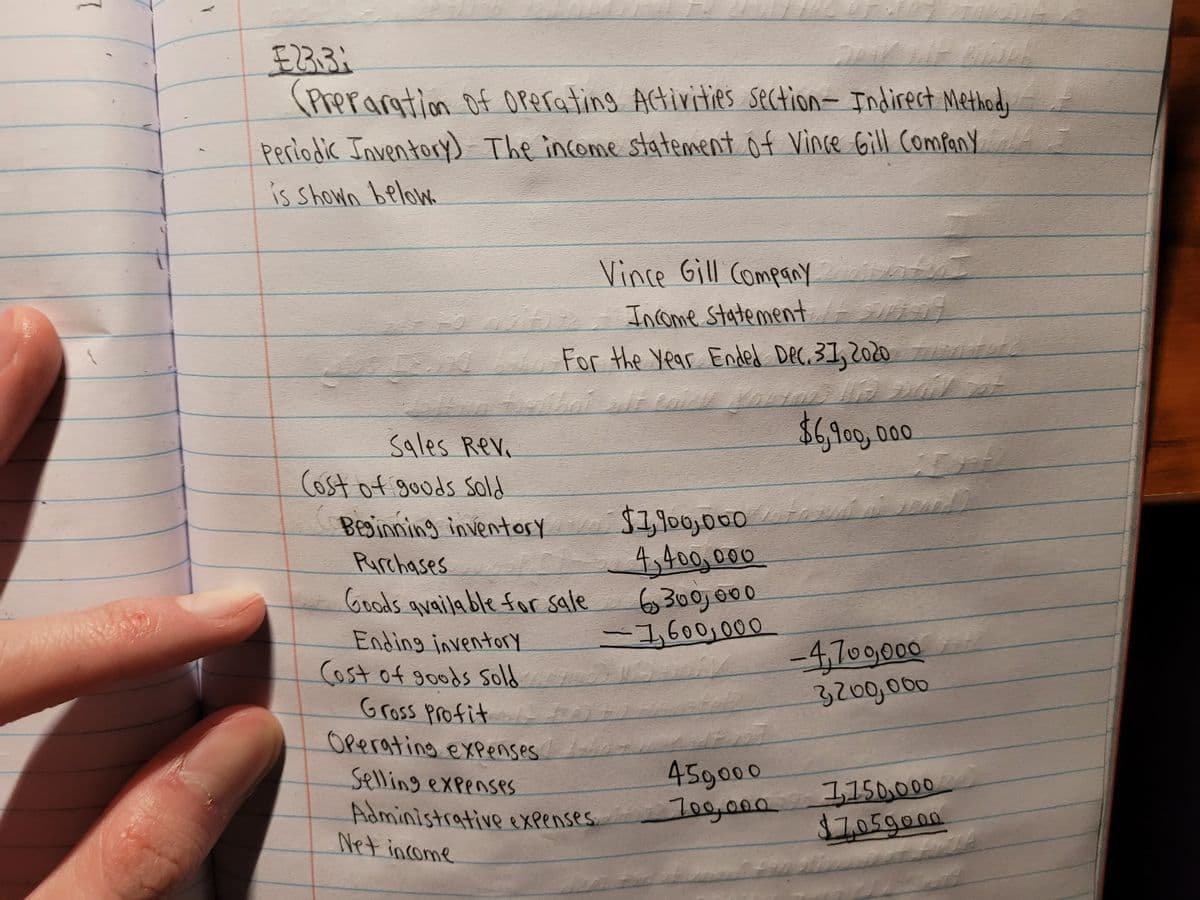 E23.3:
(Preparation of Operating Activities section- Indirect Method,
Periodic Inventory) The income statement of Vince Gill Company
is shown below.
Vince Gill Company
Income Statement
For the Year Ended Dec. 31, 2020
Sales Rev. $6,900,000
Cost of goods sold
Beginning inventory $1,900,000
Purchases 4,400,000
Goods available for sale 6,300,000
Ending inventory -1,600,000
Cost of goods sold -4,700,000
Gross profit 2,200,000
Operating expenses
Selling expenses 450,000
Administrative expenses 700,000 1,150,000
Net income $1,050,000